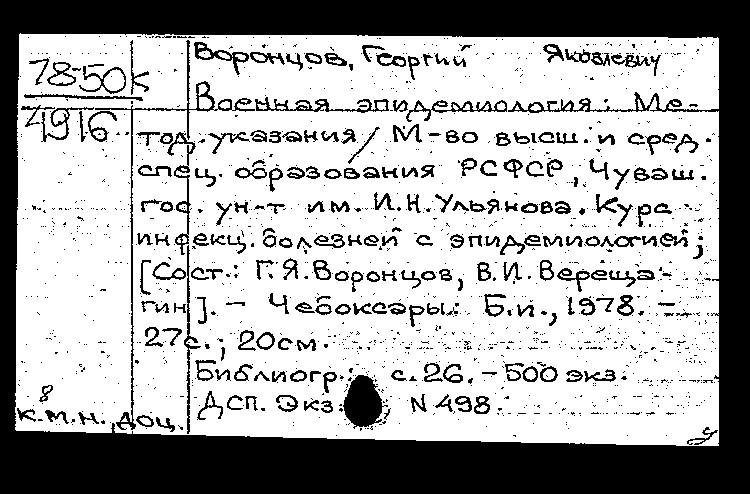 Воронцов, Георгий Яковлевич
78-50к
4916
Военная эпидемиология: Ме-
тод. указания / М-во высш. и сред.
спец. образования РСФСР, Чуваш.
гос. ун-т им. И.Н.Ульянова. Курс
инфекц. болезней с эпидемиологией;
[Сост.: Г.Я.Воронцов, В.И.Вереща-
гин]. – Чебоксары: Б.и., 1978. –
27с.; 20см.
Библиогр.: с.26. – 500 экз.
ДСП. Экз. N 498.
8
к.м.н., доц.